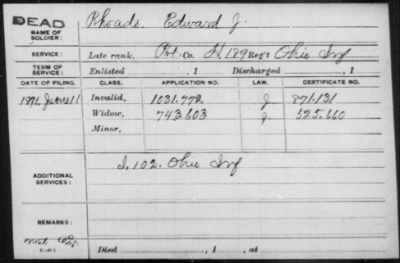 DEAD
NAME OF SOLDIER: Rhoads. Edward J.
SERVICE: Late rank, Pvt. Co. H, 189 Reg't Ohio Inf
TERM OF SERVICE: Enlisted , 1 Discharged , 1
DATE OF FILING. CLASS. APPLICATION NO. LAW. CERTIFICATE NO.
1891. Invalid, 1031.772 J. 871.131
Widow, 743.603 J. 525.660
Minor,
ADDITIONAL SERVICES: I, 102. Ohio Inf
REMARKS:
Died , 1 , at